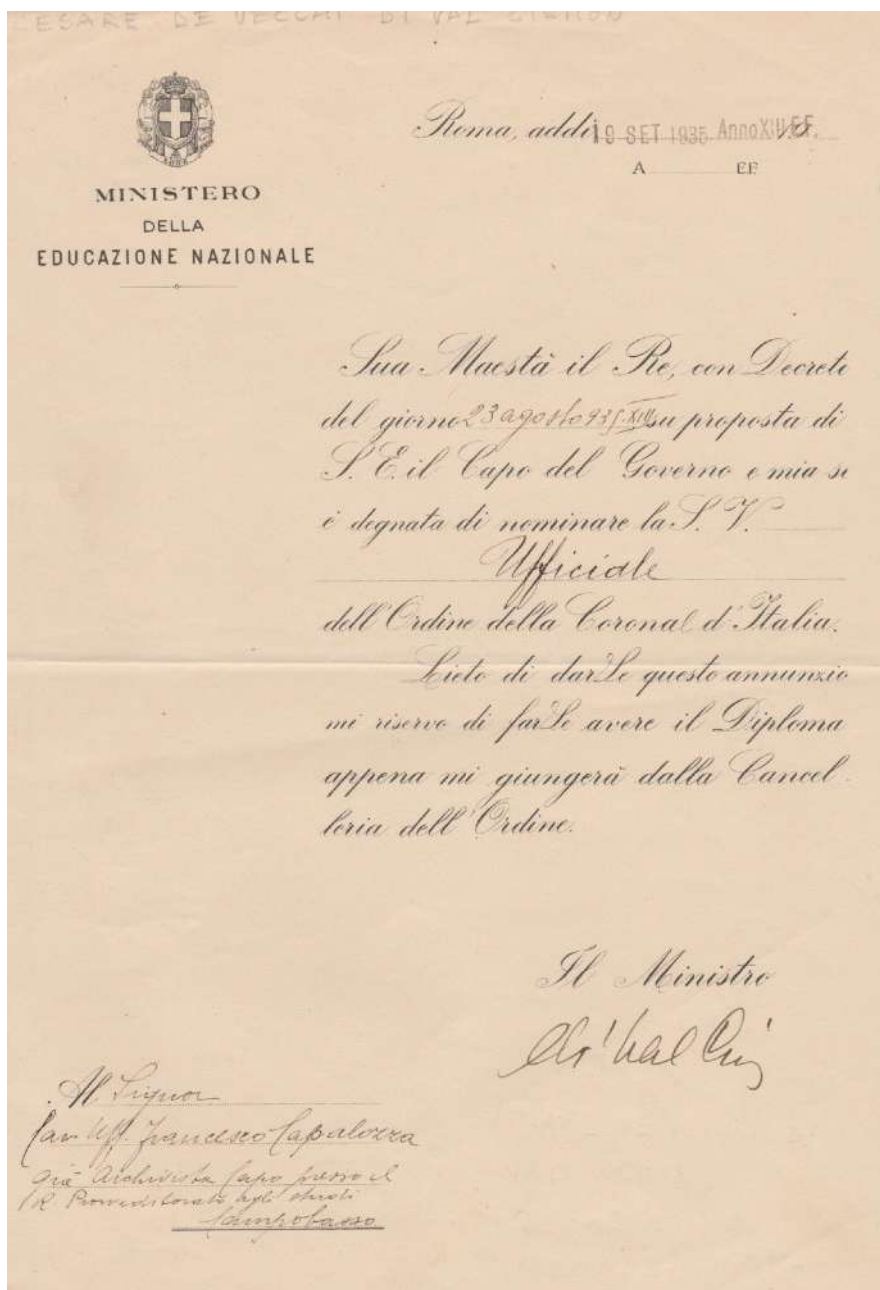 CESARE DE VECCHI DI VAL CISMON
Roma, addì 19 SET 1935 Anno XIII E.F.
A EF
MINISTERO
DELLA
EDUCAZIONE NAZIONALE
Sua Maestà il Re, con Decreto
del giorno 23 agosto 935. XIII su proposta di
S. E. il Capo del Governo e mia si
è degnata di nominare la S. V.
Ufficiale
dell'Ordine della Corona d'Italia.
Lieto di dar Le questo annunzio
mi riservo di far Le avere il Diploma
appena mi giungerà dalla Cancel-
leria dell'Ordine.
Il Ministro
Al Signor
Cav. Uff. Francesco Capalozza
già Archivista Capo presso il
R. Provveditorato agli studi
Campobasso